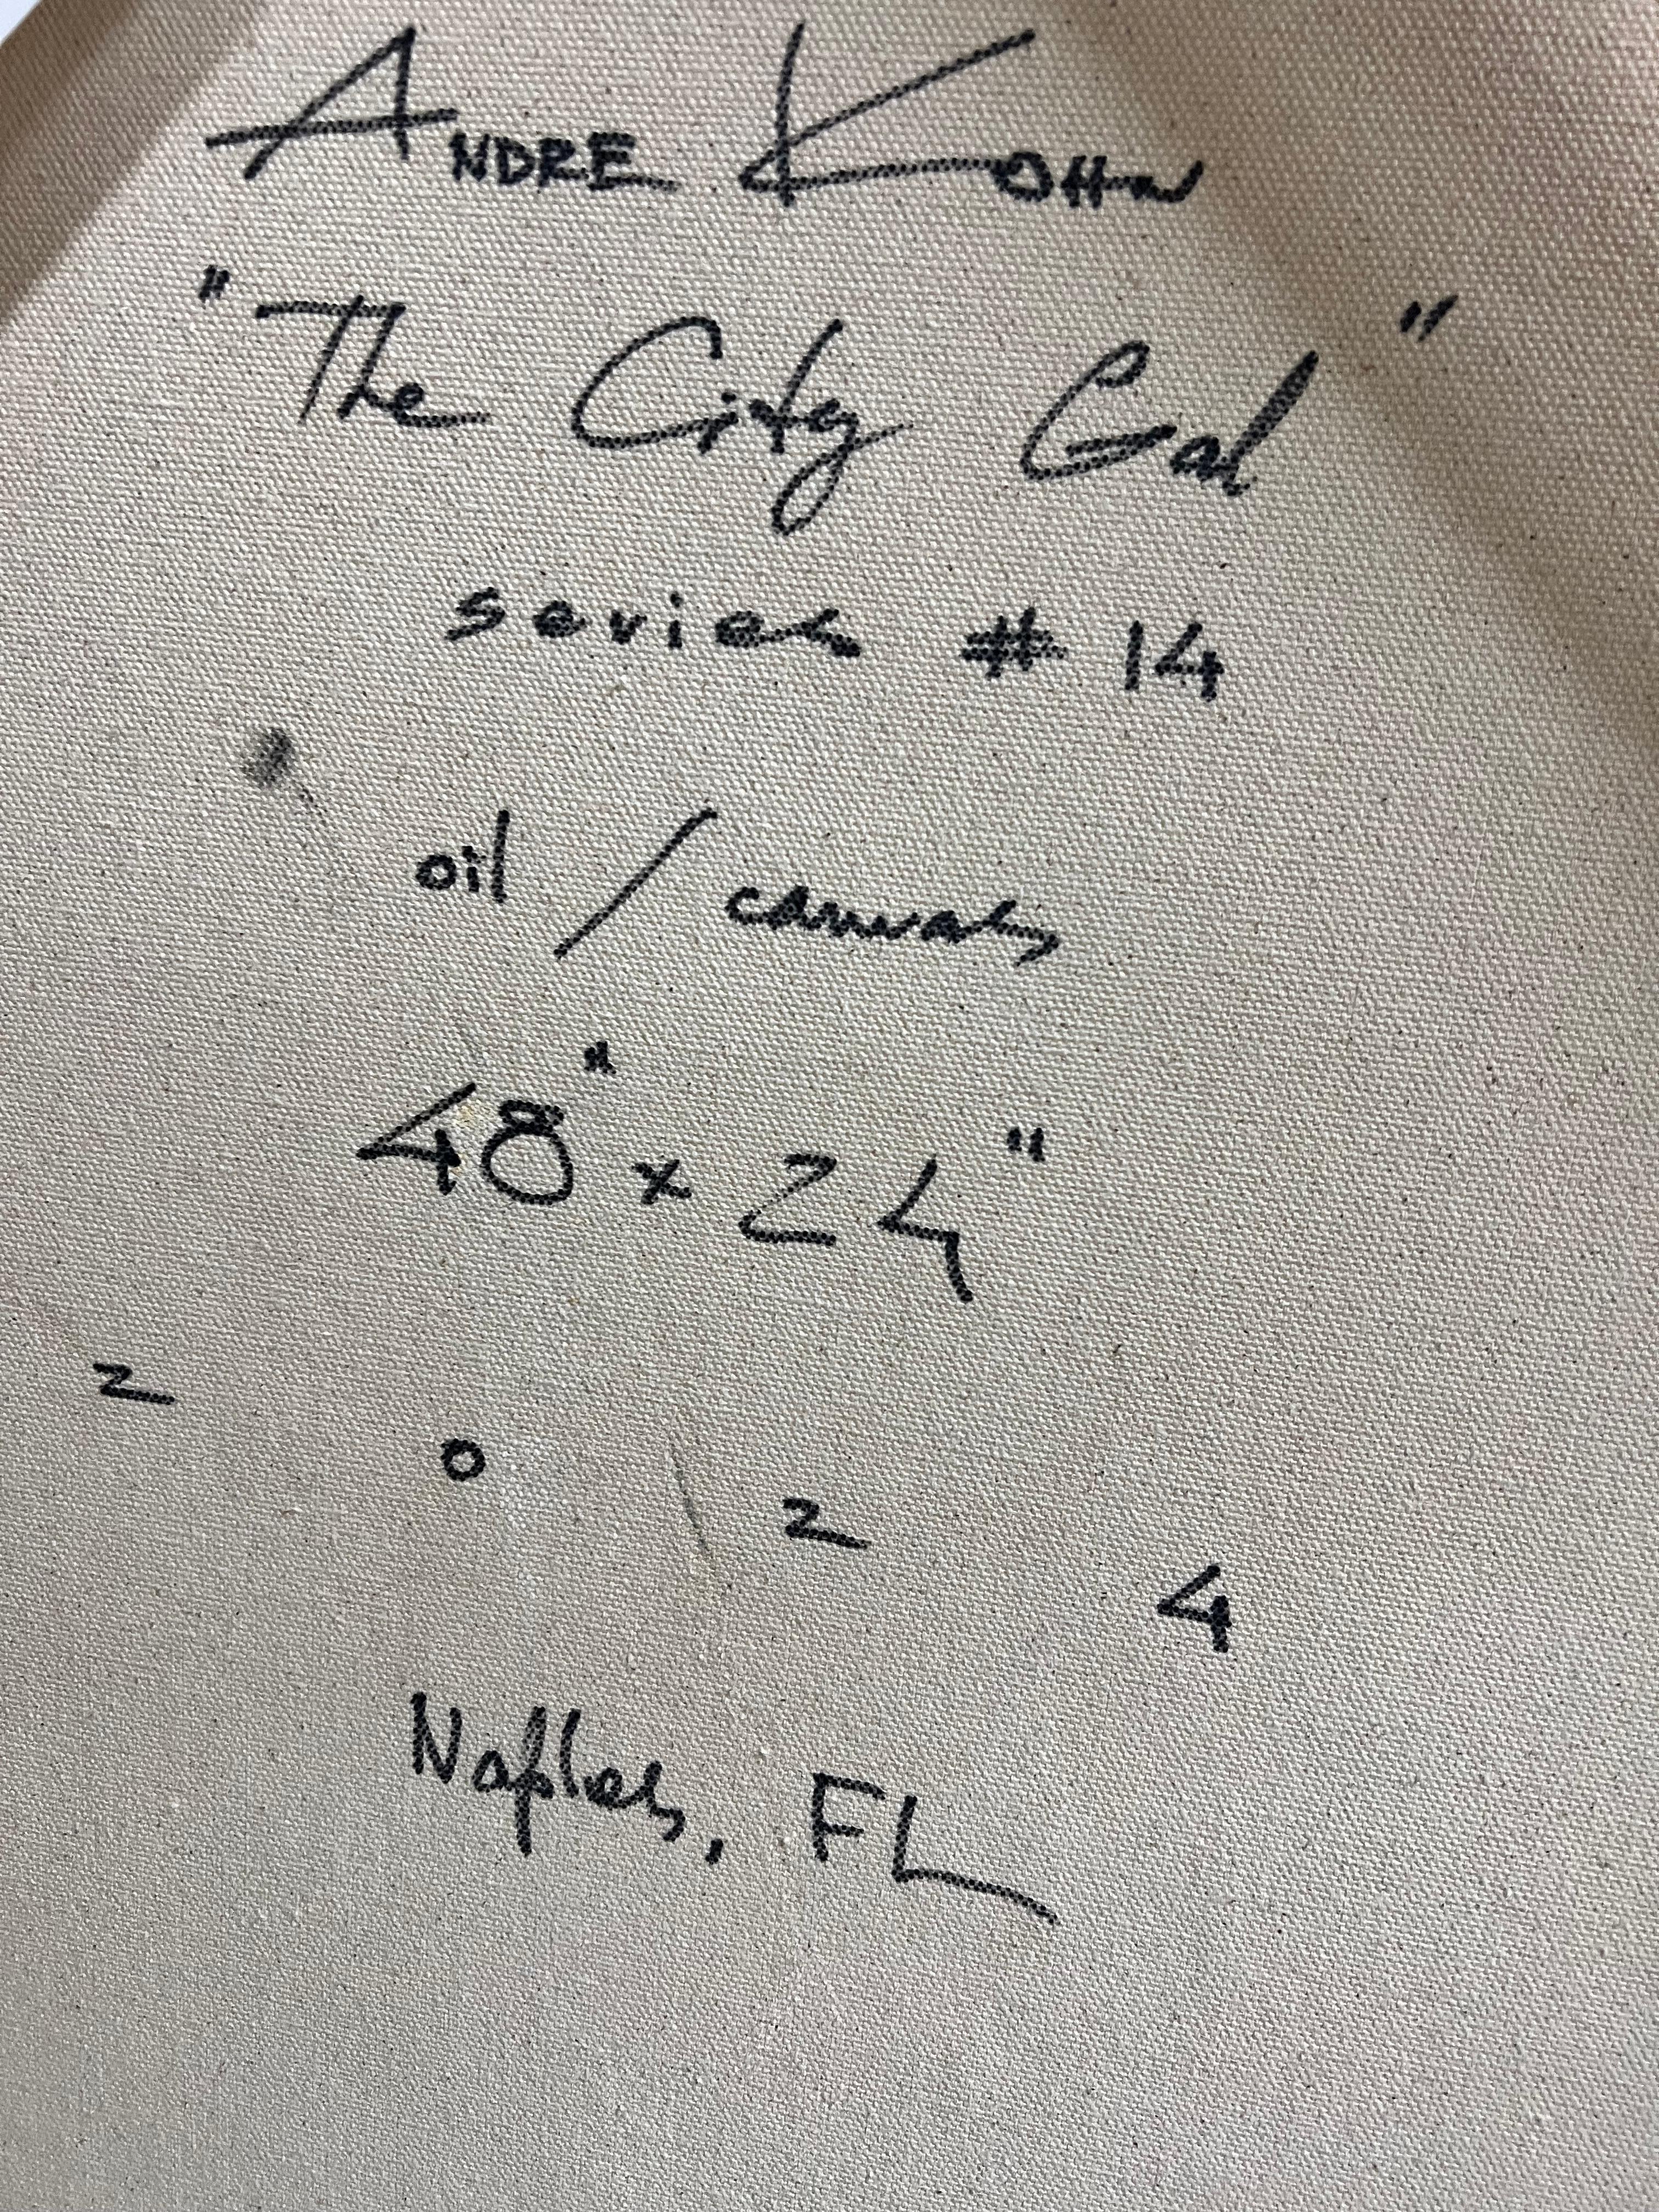 ANDRE KOHN
"The City Gal"
series # 14
oil / canvas
48" x 24"
2 0 2 4
Naples, FL